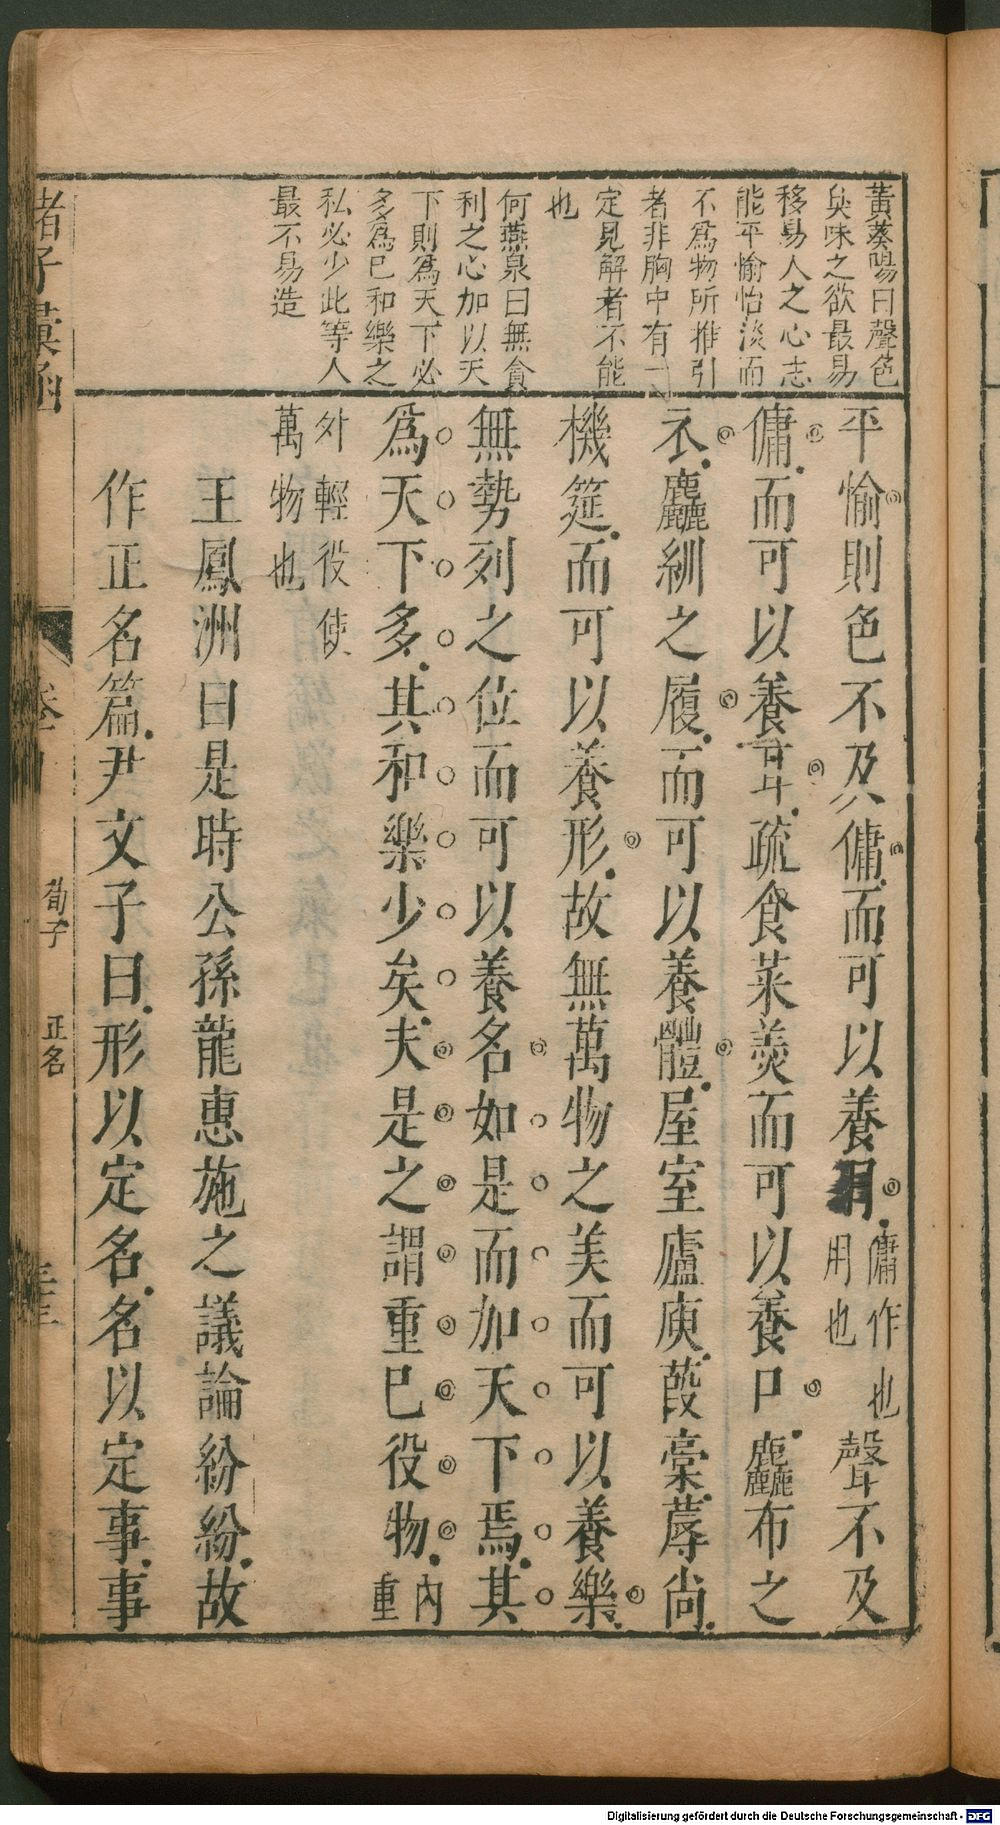 黃葵陽曰聲色
臭味之欲最易
移易人之心志
能平愉怡淡而
不爲物所推引
者非胸中有一
定見解者不能
也
何燕泉曰無貪
利之心加以天
下則爲天下必
多爲巳和樂之
私必少此等人
最不易造
平愉則色不及傭而可以養目傭作也用也聲不及
傭而可以養耳疏食菜羹而可以養口麤布之
衣麤紃之履而可以養體屋室廬庾葭槀蓐尚
機筵而可以養形故無萬物之美而可以養樂
無勢列之位而可以養名如是而加天下焉其
爲天下多其和樂少矣夫是之謂重巳役物內重
外輕役使
萬物也
王鳳洲曰是時公孫龍惠施之議論紛紛故
作正名篇尹文子曰形以定名名以定事事
諸子彙函
荀子
正名
Digitalisierung gefördert durch die Deutsche Forschungsgemeinschaft - DFG